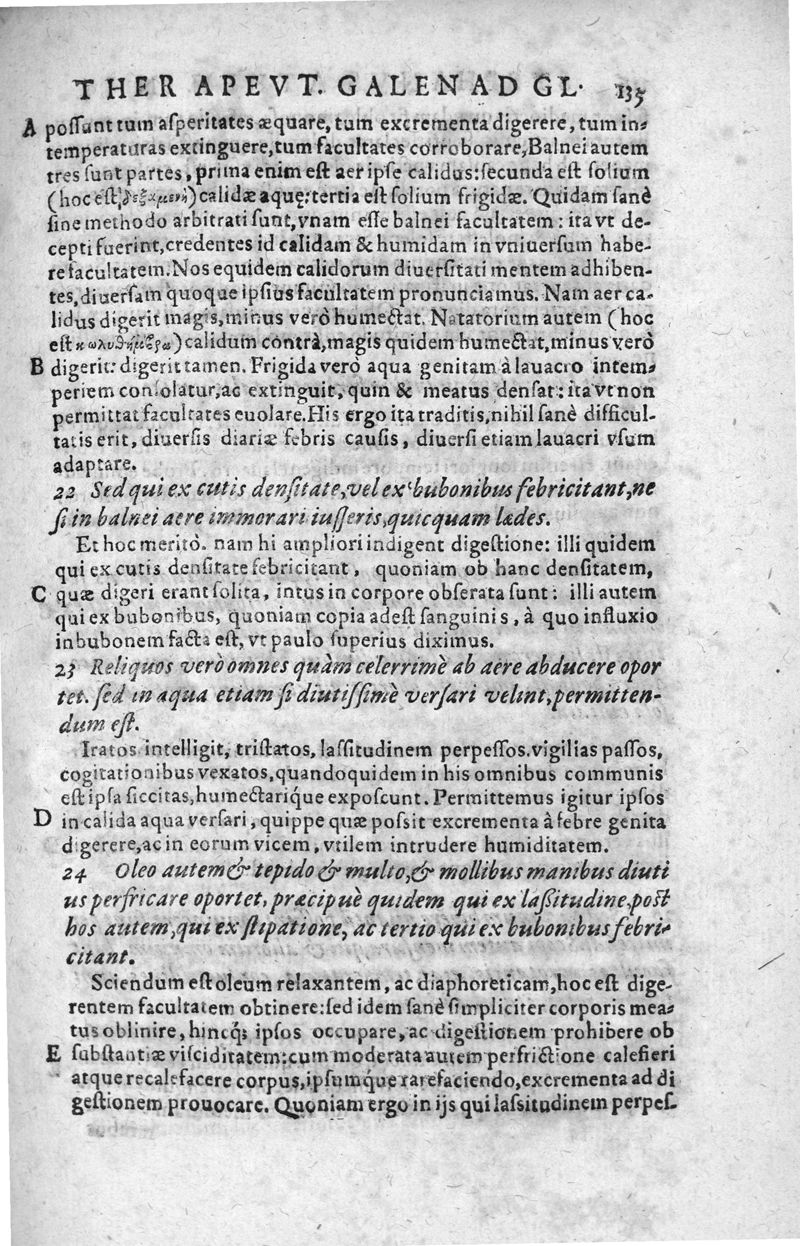 THERAPEVT. GALEN AD GL. 135
A possunt tum asperitates æquare, tum excrementa digerere, tum in-
temperaturas extinguere, tum facultates corroborare, Balnei autem
tres sunt partes, prima enim est aer ipse calidus: secunda est solium
(hoc est, δεξαμενὴ) calidæ aquę: tertia est solium frigidæ. Quidam sanè
sine methodo arbitrati sunt, vnam esse balnei facultatem: ita vt de-
cepti fuerint, credentes id calidam & humidam in vniuersum habe-
re facultatem. Nos equidem calidorum diuersitati mentem adhiben-
tes, diuersam quoque ipsius facultatem pronunciamus. Nam aer ca-
lidus digerit magis, minus verò humectat. Natatorium autem (hoc
est κολυθήμεξρα) calidum contrà, magis quidem humectat, minus verò
B digerit: digerit tamen. Frigida verò aqua genitam à lauacro intem-
periem consolatur, ac extinguit, quin & meatus densat: ita vt non
permittat facultates euolare. His ergo ita traditis, nihil sanè difficul-
tatis erit, diuersis diariæ febris causis, diuersi etiam lauacri vsum
adaptare.
22 Sed qui ex cutis densitate, vel ex bubonibus febricitant, ne
si in balnei aere immorari iusseris, quicquam lædes.
Et hoc meritò. nam hi ampliori indigent digestione: illi quidem
qui ex cutis densitate febricitant, quoniam ob hanc densitatem,
C quæ digeri erant solita, intus in corpore obserata sunt: illi autem
qui ex bubonibus, quoniam copia adest sanguinis, à quo influxio
in bubonem facta est, vt paulo superius diximus.
23 Reliquos verò omnes quàm celerrimè ab aere abducere opor
tet. sed in aqua etiam si diutissimè versari velint, permitten-
dum est.
Iratos intelligit, tristatos, lassitudinem perpessos. vigilias passos,
cogitationibus vexatos, quandoquidem in his omnibus communis
est ipsa siccitas, humectariq́ue exposcunt. Permittemus igitur ipsos
D in calida aqua versari, quippe quæ possit excrementa à febre genita
digerere, ac in eorum vicem, vtilem intrudere humiditatem.
24 Oleo autem & tepido & multo, & mollibus manibus diuti
us perfricare oportet, præcipuè quidem qui ex lassitudine, post
hos autem, qui ex stipatione, ac tertio qui ex bubonibus febri-
citant.
Sciendum est oleum relaxantem, ac diaphoreticam, hoc est dige-
rentem facultatem obtinere: sed idem sanè simpliciter corporis mea-
tus oblinire, hincq́; ipsos occupare, ac digestionem prohibere ob
E substantiæ visciditatem: cum moderata autem perfrictione calefieri
atque recalefacere corpus, ipsumq́ue rarefaciendo, excrementa ad di
gestionem prouocare. Quoniam ergo in ijs qui lassitudinem perpes-